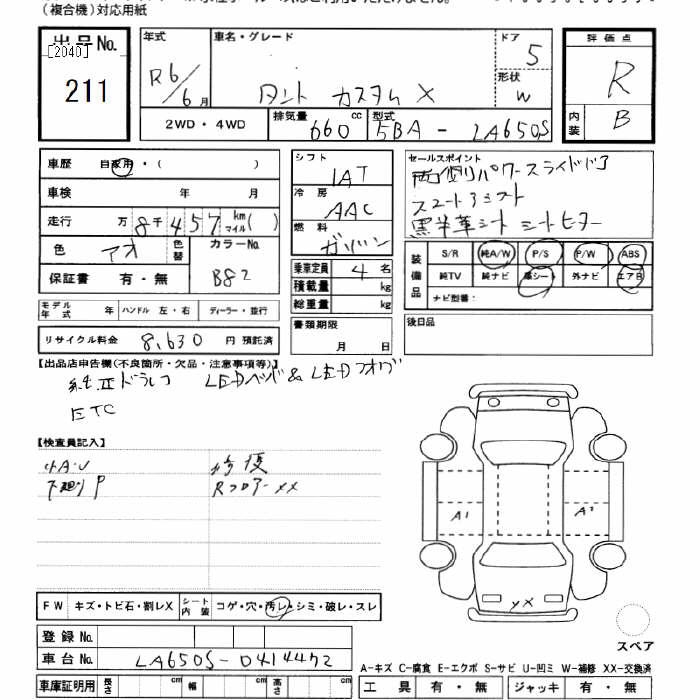 (複合機)対応用紙
出品No.
[2040]
211
年式
R6/6月
車名・グレード
タント カスタム X
ドア
5
形状
W
評価点
R
内装
B
2WD・4WD
排気量
660 cc
型式
5BA - LA650S
車歴 自家用・( )
車検 年 月
走行 万 8千457 km マイル( )
色 アオ
色替
カラーNo.
B82
保証書 有・無
シフト
IAT
冷房
AAC
燃料
ガソリン
乗車定員 4 名
積載量 kg
総重量 kg
セールスポイント
両側パワースライドドア
スマートアシスト
黒半革シート シートヒーター
装備品
S/R 純A/W P/S P/W ABS
純TV 純ナビ 革シート 外ナビ エアB
ナビ型番:
モデル年式 年
ハンドル 左・右
ディーラー・並行
リサイクル料金 8,630 円 預託済
書類期限
月 日
後日品
【出品店申告欄(不良箇所・欠品・注意事項等)】
純正ドラレコ LEDヘッド&LEDフォグ
ETC
【検査員記入】
小A・U
下廻りP
修復
Rフロアー XX
A1
A2
XX
スペア
FW キズ・トビ石・割レX
シート内装 コゲ・穴・汚レ・シミ・破レ・スレ
登録No.
車台No. LA650S-0414472
A-キズ C-腐食 E-エクボ S-サビ U-凹ミ W-補修 XX-交換済
車庫証明用 長さ cm 幅 cm 高さ cm
工具 有・無 ジャッキ 有・無